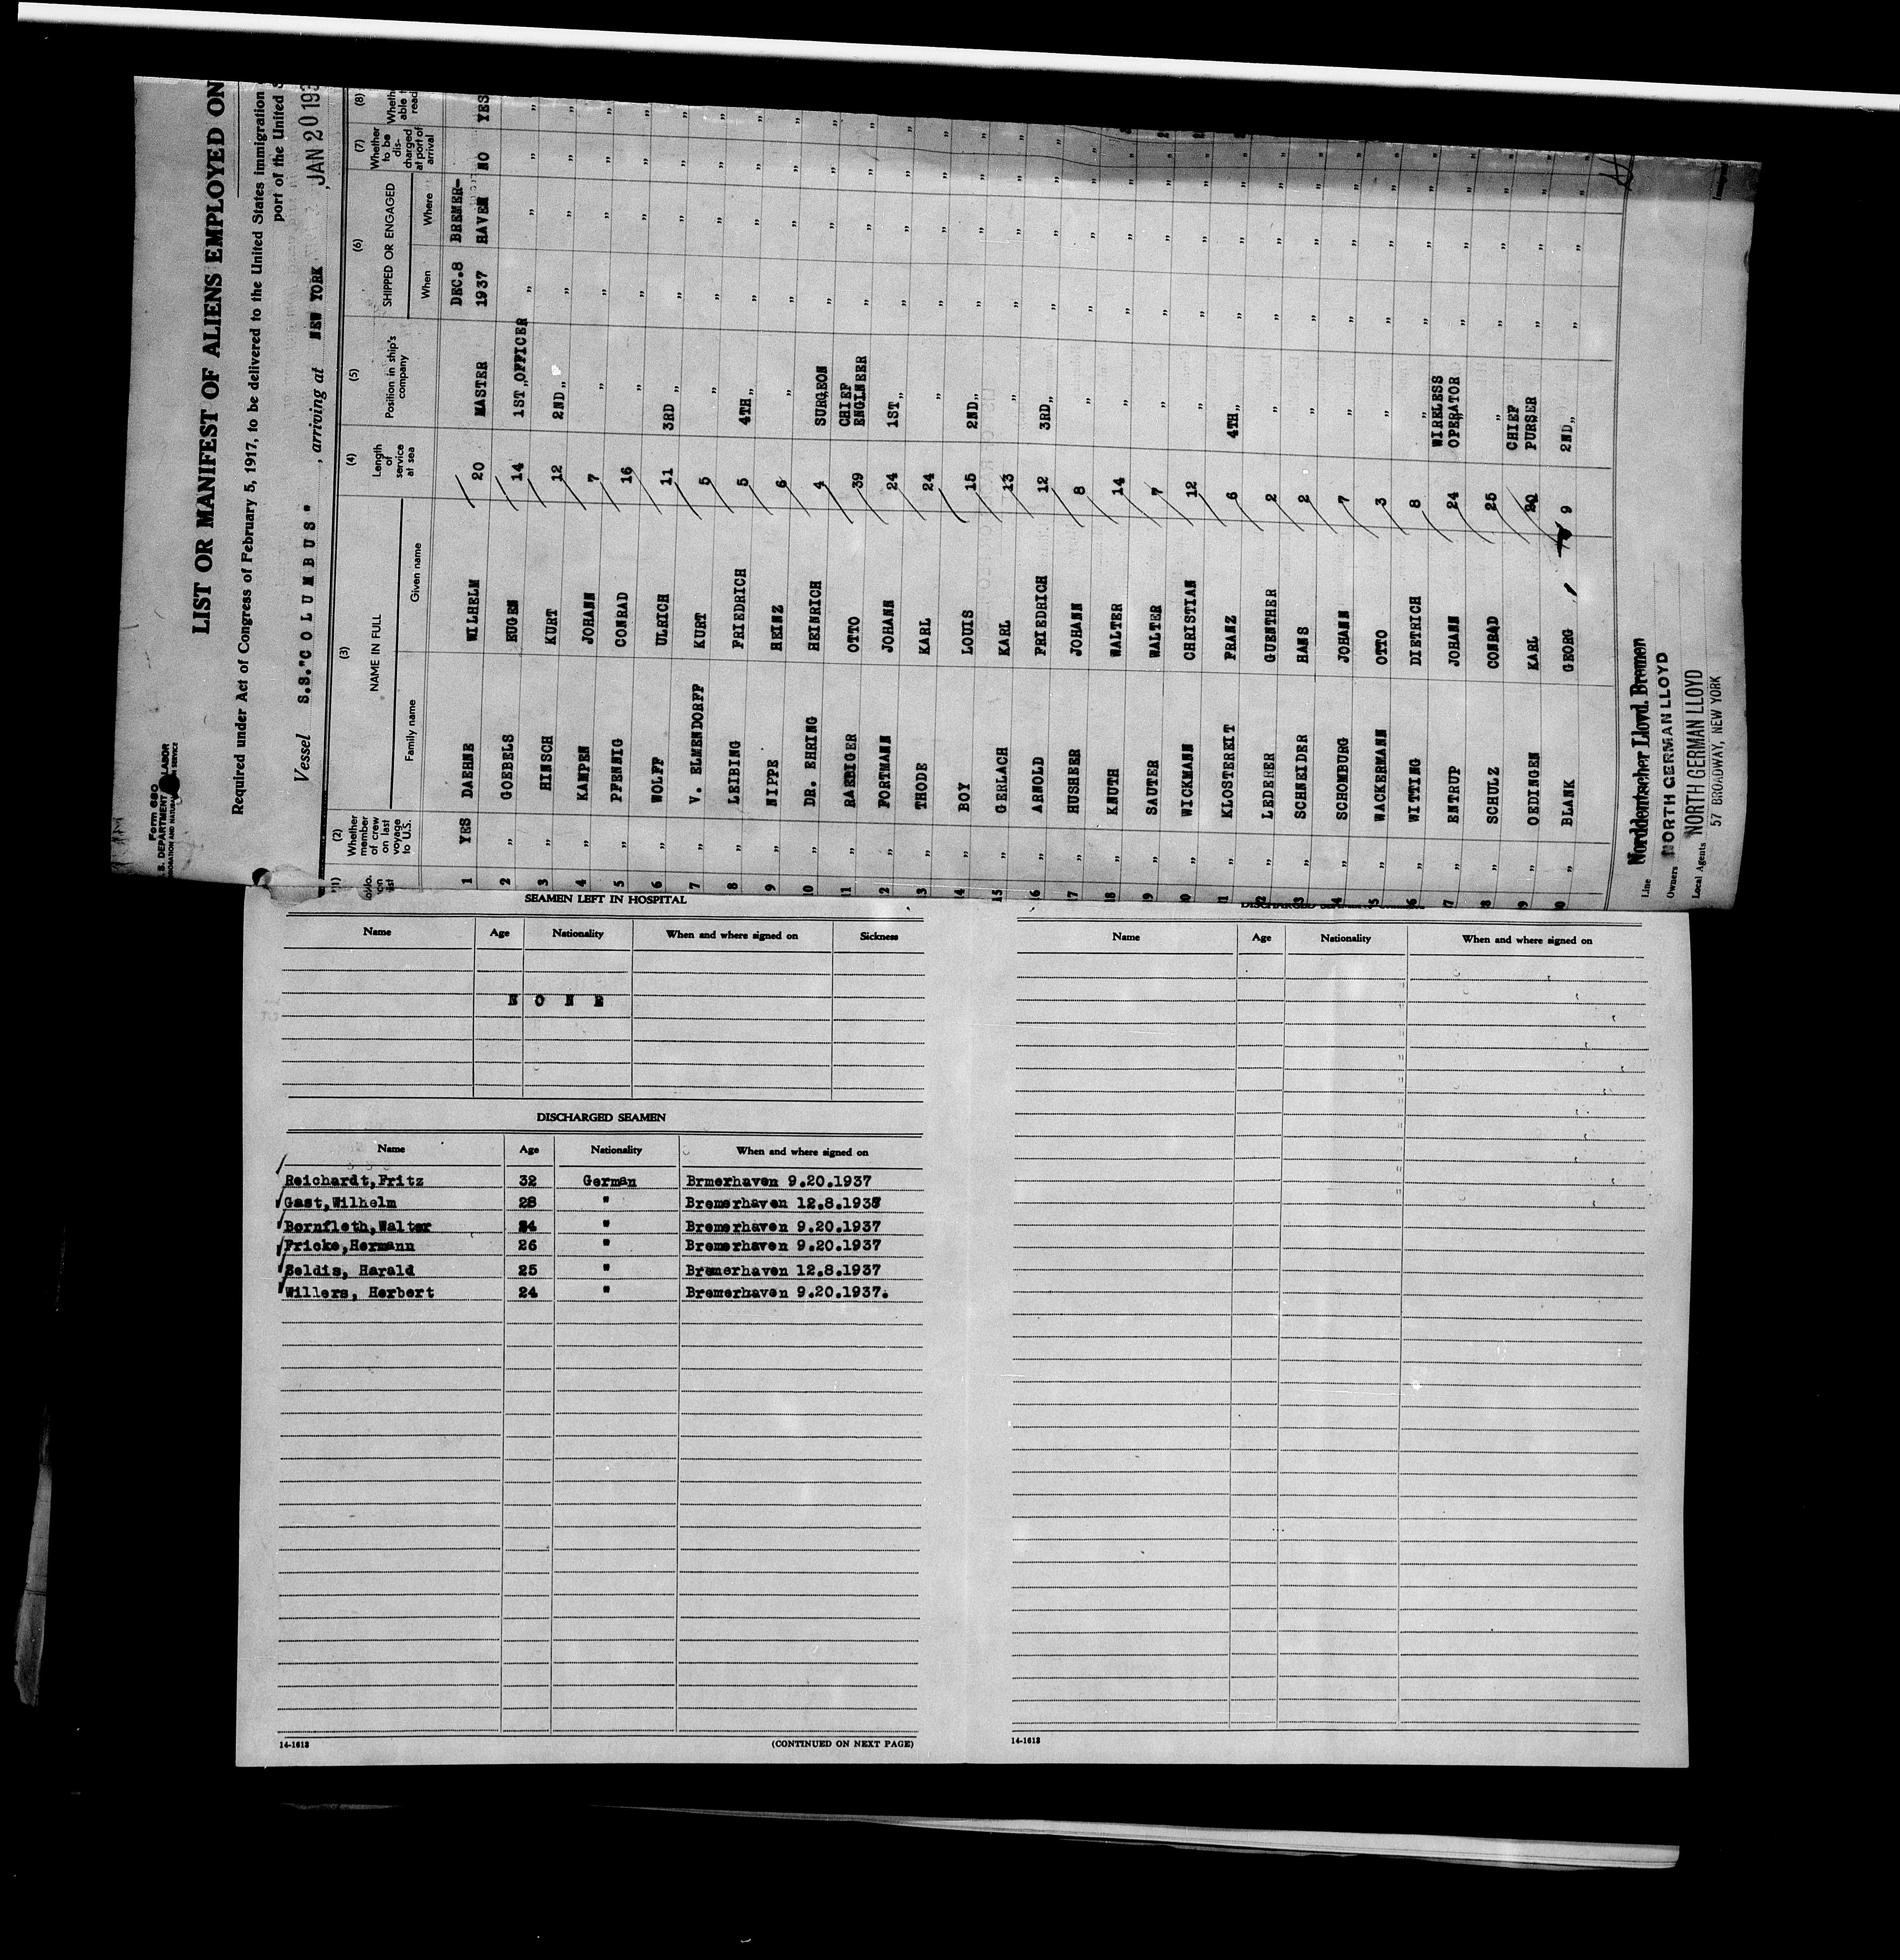 Form 680
U. S. DEPARTMENT LABOR
LIST OR MANIFEST OF ALIENS EMPLOYED ON
Required under Act of Congress of February 5, 1917, to be delivered to the United States immigration
port of the United S
Vessel S.S."COLUMBUS" , arriving at NEW YORK , JAN 20 193
(1) (2) (3) (4) (5) (6) (7) (8)
Whether member of crew on last voyage to U.S. NAME IN FULL Length of service at sea Position in ship's company SHIPPED OR ENGAGED Whether to be discharged at port of arrival Wheth able t read
Family name Given name When Where
1 YES DAEHNE WILHELM 20 MASTER DEC.8 1937 BREMER-HAVEN NO YES
2 " GOEBELS EUGEN 14 1ST OFFICER " " " "
3 " HINSCH KURT 12 2ND " " " " "
4 " KAMPEN JOHANN 7 " " " " "
5 " PFENNIG CONRAD 16 " " " " "
6 " WOLFF ULRICH 11 3RD " " " " "
7 " V. ELMENDORFF KURT 5 " " " " "
8 " LEIBING FRIEDRICH 5 4TH " " " " "
9 " NIPPE HEINZ 6 " " " " "
10 " DR. EHRING HEINRICH 4 SURGEON " " " "
11 " RAEBIGER OTTO 39 CHIEF ENGINEER " " " "
12 " FORTMANN JOHANN 24 1ST " " " " "
13 " THODE KARL 24 " " " " "
14 " BOY LOUIS 15 2ND " " " " "
15 " GERLACH KARL 13 " " " " "
16 " ARNOLD FRIEDRICH 12 3RD " " " " "
17 " HUSHEER JOHANN 8 " " " " "
18 " KNUTH WALTER 14 " " " " "
19 " SAUTER WALTER 7 " " " " "
20 " WICKMANN CHRISTIAN 12 " " " " "
21 " KLOSTEREIT FRANZ 6 4TH " " " " "
22 " LEDERER GUENTHER 2 " " " "
23 " SCHNEIDER HANS 2 " " " "
24 " SCHOMBURG JOHANN 7 " " " "
25 " WACKERMANN OTTO 3 " " " "
26 " WITTING DIETRICH 8 " " " "
27 " ENTRUP JOHANN 24 WIRELESS OPERATOR " " "
28 " SCHULZ CONRAD 25 " " " "
29 " OEDINGEN KARL 20 CHIEF PURSER " " "
30 " BLANK GEORG 9 2ND " " " "
Line Norddeutscher Lloyd, Bremen
Owners NORTH GERMAN LLOYD
Local Agents NORTH GERMAN LLOYD
57 BROADWAY, NEW YORK
SEAMEN LEFT IN HOSPITAL
Name Age Nationality When and where signed on Sickness
NONE
DISCHARGED SEAMEN
Name Age Nationality When and where signed on
Reichardt,Fritz 32 German Brmerhaven 9.20.1937
Gast,Wilhelm 28 " Bremerhaven 12.8.1937
Bornfleth,Walter 24 " Bremerhaven 9.20.1937
Fricke,Hermann 26 " Bremerhaven 9.20.1937
Seldis, Harald 25 " Bremerhaven 12.8.1937
Willers, Herbert 24 " Bremerhaven 9.20.1937.
14-1613 (CONTINUED ON NEXT PAGE)
Name Age Nationality When and where signed on
14-1613